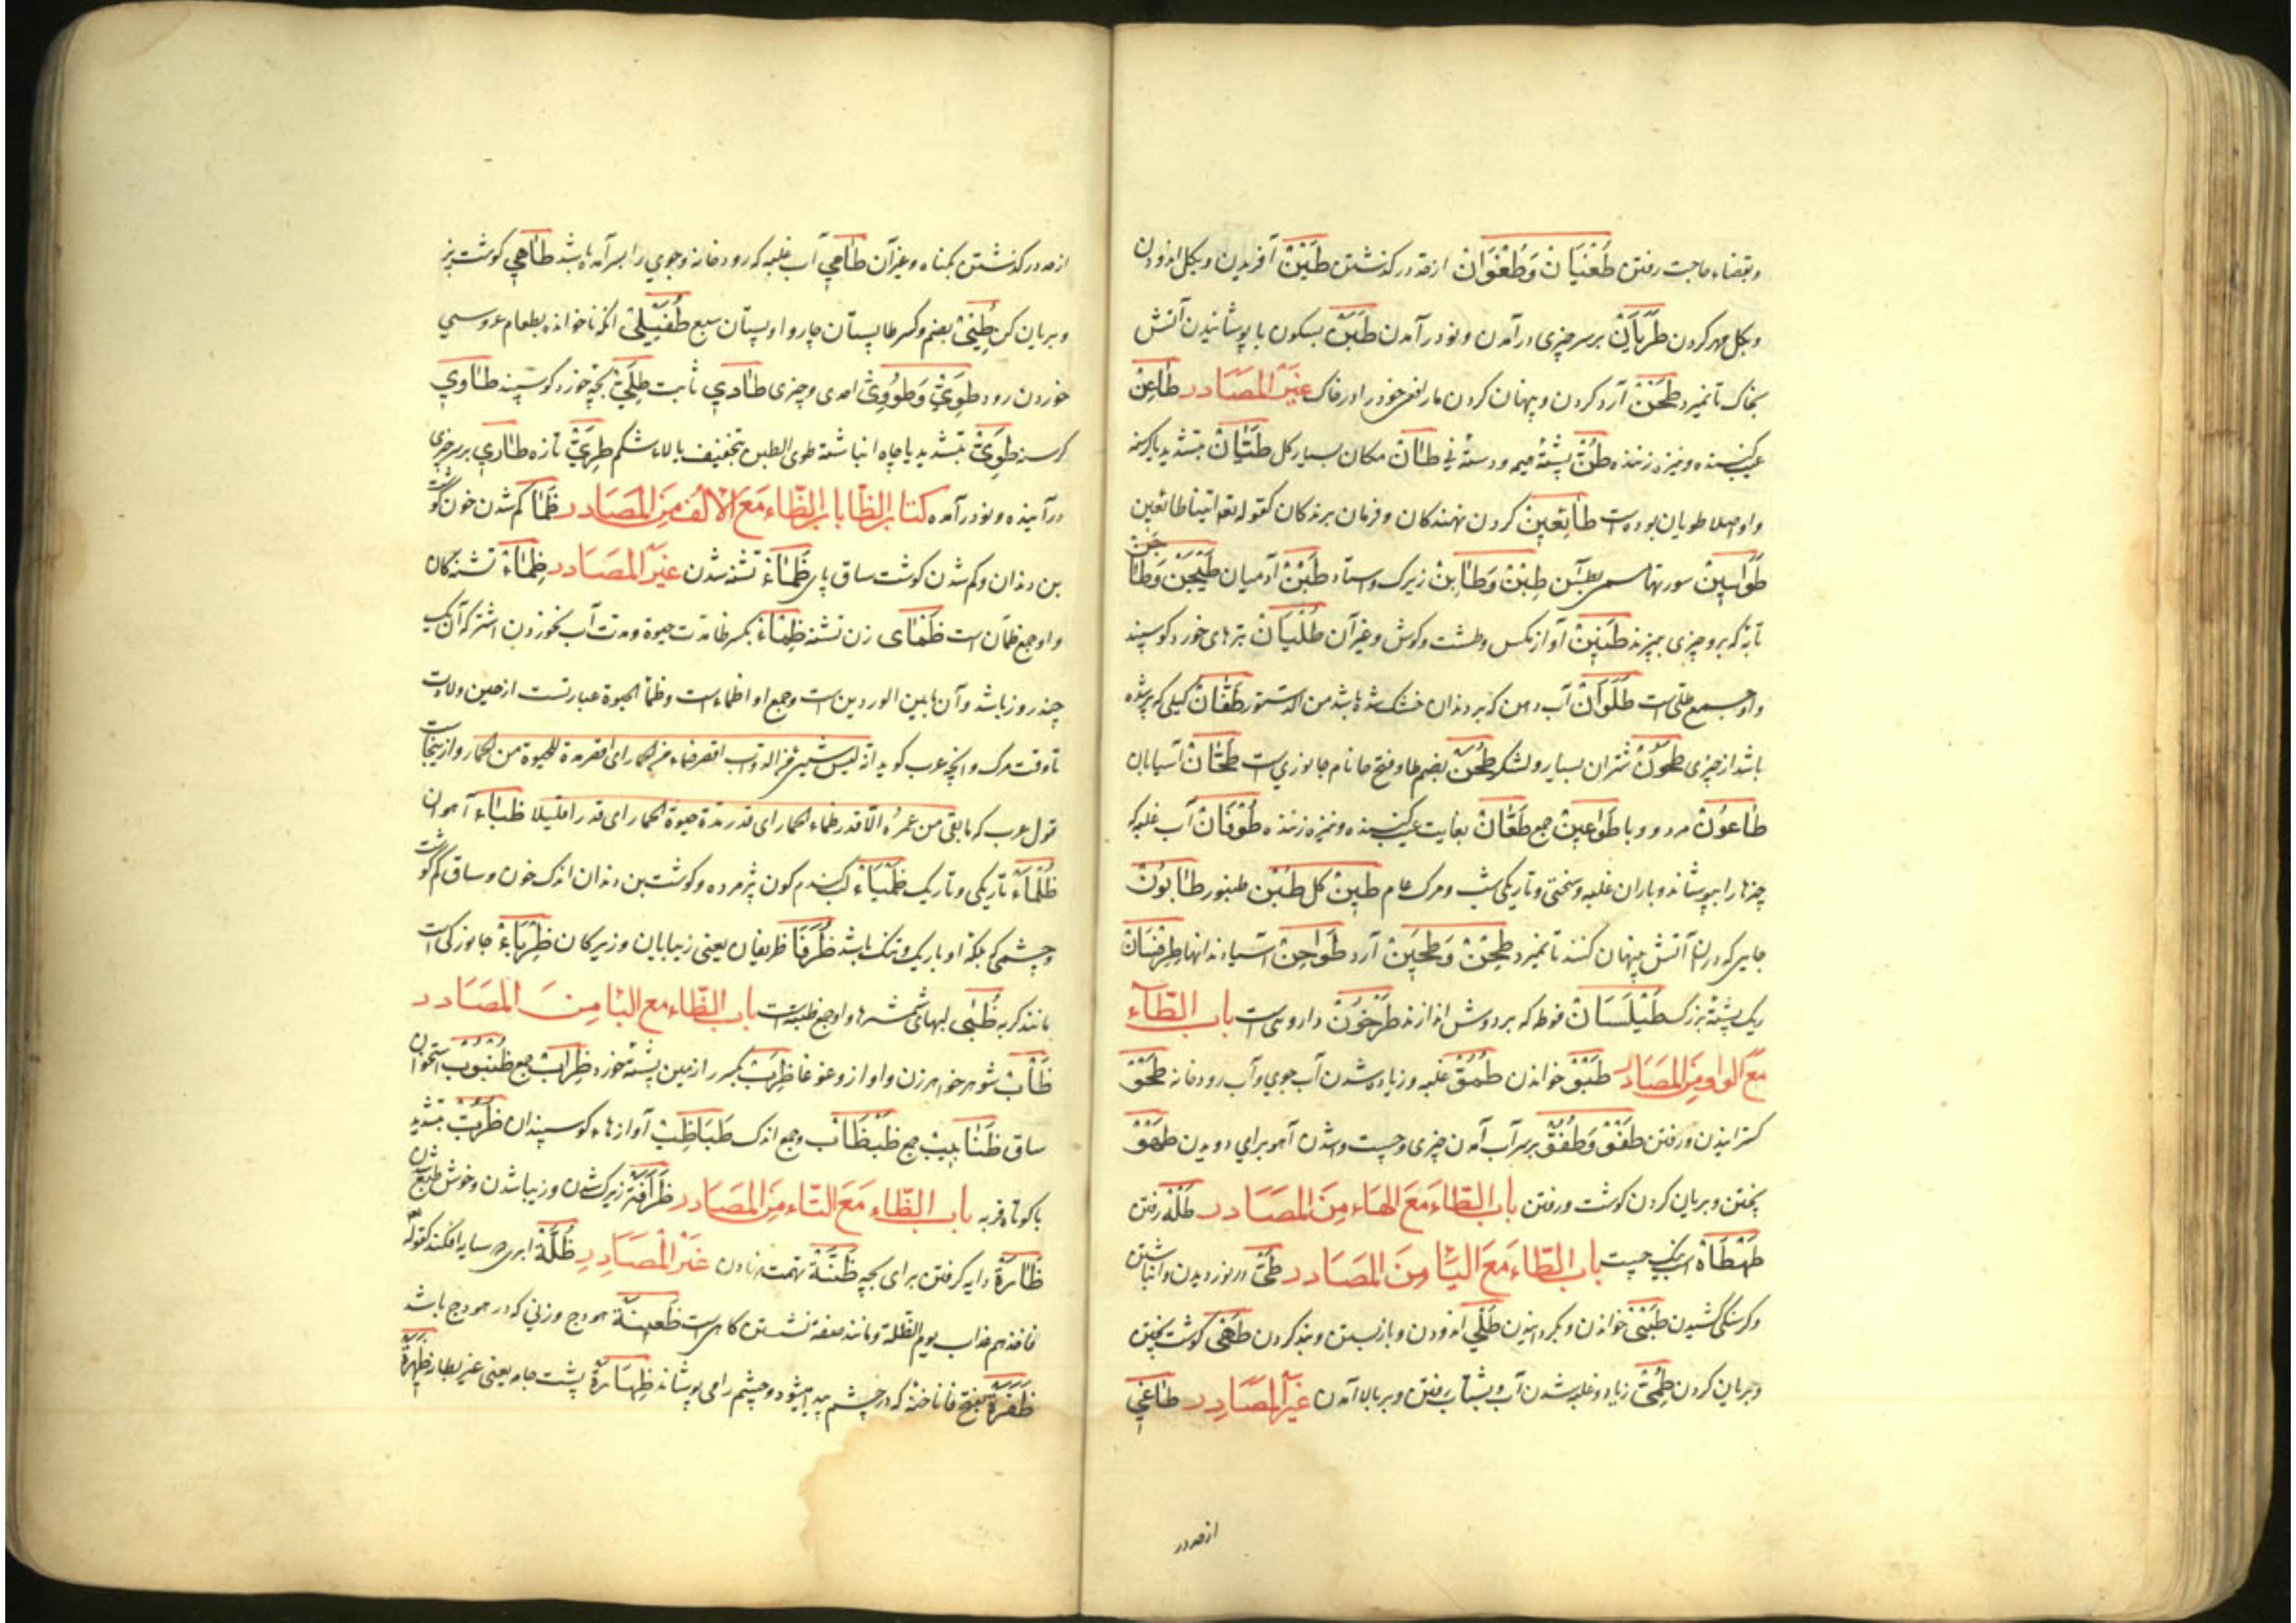 وبقضاء حاجت رفتن طُغْيَان وَطُغْوَان از حد در کذشتن طَيْنْ آفریدن و بکل اندودن
و بکل مهر کردن طَرَيَانْ بر سر چیزی در آمدن و نو در آمدن طَبَنْ بسکون با پوشانیدن آتش
بخاک تا نمیرد طَحْنْ آرد کردن و پنهان کردن مار افعی خود را در خاک غَيْرُ الْمَصَادر طَاعِنْ
عیب کننده و نیزه زننده طُنّ پشتۀ هیمه و دستۀ نی طَانْ مکان بسیار کل طَيَّانْ بتشدید یا کرسنه
و او اصلا طویان بوده است طَائِعِينْ کردن نهندکان و فرمان برندکان کقوله تعه اتینا طائعین
طَوَاسِينْ سورتها طَبِنْ وَطَابِنْ زیرک و استاد طَبْنْ آدمیان طَيْجَنْ وَطَاجَنْ
تابۀ که برو چیزی بپزند طَنِينْ آواز مکس و طشت و کوش و غیر آن طُلْيَانْ بره‌ای خورد کوسپند
و او جمع طلی است طَلَوَانْ آب دهن که بر دندان خشک شده باشد من الدستور طَفَّانْ کیلی که پر شده
باشد از چیزی طَحُونْ شتران بسیار و لشکر طُحَنْ بضم طا و فتح حا نام جانوری است طَحَّانْ آسیابان
طَاعُونْ مرد و وبا طَوَاعِينْ جمع طَعَّانْ بغایت عیب کننده و نیزه زننده طُوفَانْ آب غلبه که
چیزها را بپوشاند و باران غلبه و سختی و تاریکی شب و مرک عام طِينْ کل طُبْن طنبور طَابُونْ
جایی که دران آتش پنهان کنند تا نمیرد طِحْنْ وَطَحِينْ آرد طَوَاحِنْ آسیا دندانها
ریک پشتۀ بزرک طَيْلَسَانْ فوطه که بر دوش اندازند طَرْخُونْ داروی است باب الطّاء
مَعَ الواو مِنَ المصادر طَبْق خواندن طُمُوّ غلبه و زیاده شدن آب جوی و آب رودخانه طَحْو
کسترانیدن و رفتن طَفْو وَطُفُوّ بر سر آب آمدن چیزی و چست شدن آهو برای دویدن طَهْو
پختن و بریان کردن کوشت و رفتن باب الطاء مَعَ الهاء مِنَ المَصَادر طَلْه رفتن
طَهْطَاه اسب چست باب الطّاء مَعَ اليا مِنَ المصادر طَیّ در نوردیدن و انباشتن
و کرسنکی کشیدن طَبْی خواندن و بکردانیدن طَلْی اندودن و باز بستن و بند کردن طَهْی کوشت پختن
و بریان کردن طُمِیّ زیاد و غلبه شدن آب و بشتاب رفتن و بر بالا آمدن غَيْرُ الْمَصَادِر طَاغِي
از حد در
از حد در کذشتن بکناه و غیر آن طَامِي آب غلبه که رودخانه و جوی را بسر آمده باشد طَاهِي کوشت پز
و بریان کن طُبْیْ بضم و کسر طا پستان چاروا و پستان سبع طُفَيْلِي انکه ناخوانده بطعام عروسی
خوردن رود طَوِيّ وَطُووِيّ آدمی و چیزی طَادِي ثابت طَلِيّ بچۀ خورد کوسپند طَاوِي
کرسنه طَوِيّ بتشدید یا چاه انباشته طوی البطن بتخفیف یا لاغر شکم طَرِيّ تازه طَارِي بر سر چیزی
در آینده و نو در آمده کتاب الظا باب الظّاء مَعَ الالف مِنَ المَصَادر ظَمَا کم شدن خون کوشت
بن دندان و کم شدن کوشت ساق پای ظَمَاءْ تشنه شدن غَيْرُ المصَادر ظِمَاءْ تشنه‌کان
و او جمع ظمآن است ظَمْأَى زن تشنه ظِمْاءْ بکسر ظا مدت حیوة و مدت آب نخوردن اشتر که آن یک
چند روز باشد و آن ما بین الوردین است و جمع او اظماء است و ظمأ الحیوة عبارتست از حین ولادت
تا وقت مرک و انچه عرب کوید از و از ینجاست
قول عرب که ما بقی من عمره الا قدر ظماء الحمار ای قدر مدة حیوة الحمار ای قدرا قلیلا ظِبَاءْ آهوان
ظَلْمَاءْ تاریکی و تاریک ظَمْيَاءْ لب کندم کون پژمرده و کوشت بن دندان اندک خون و ساق کم کوشت
و چشمی که پلک او باریک و تنک باشد ظُرَفَا ظریفان یعنی زیبایان و زیرکان ظِرْبَاءْ جانورکی است
مانند کربه ظُبَى لبهای شمشیرها و او جمع ظبة است باب الظّاء مع البا مِنَ المصَادر
ظَأْبْ شوهر خواهر زن و آواز و غوغا ظَرِبْ بکسر را زمین پشتۀ خورد ظِرَابْ جمع ظُنْبُوبْ استخوان
ساق ظَنَابِيبْ جمع ظَبْظَابْ و جمع اندک ظَبَاظِبْ آوازهاء کوسپندان ظُرُبّ بتشدید
با کوتاه فربه باب الظّاء مَعَ التّاء مِنَ المصادر ظَرَافَة زیرک شدن و زیبا شدن و خوش طبع شدن
ظَائرَة دایه کرفتن برای بچه ظِنَّة تهمت نهادن غَيْرُ الْمصَادِرِ ظُلَّة ابری که سایه افکند کقوله
فاخذهم عذاب یوم الظلة و مانند صفه نشستن کاهی است ظَعِينَة هودج و زنی که در هودج باشد
ظَفَرَة بفتح فا ناخنه که در چشم پیدا میشود و چشم را می پوشاند ظِهَارَة پشت جامه یعنی غیر بطانه ظِهْرَة